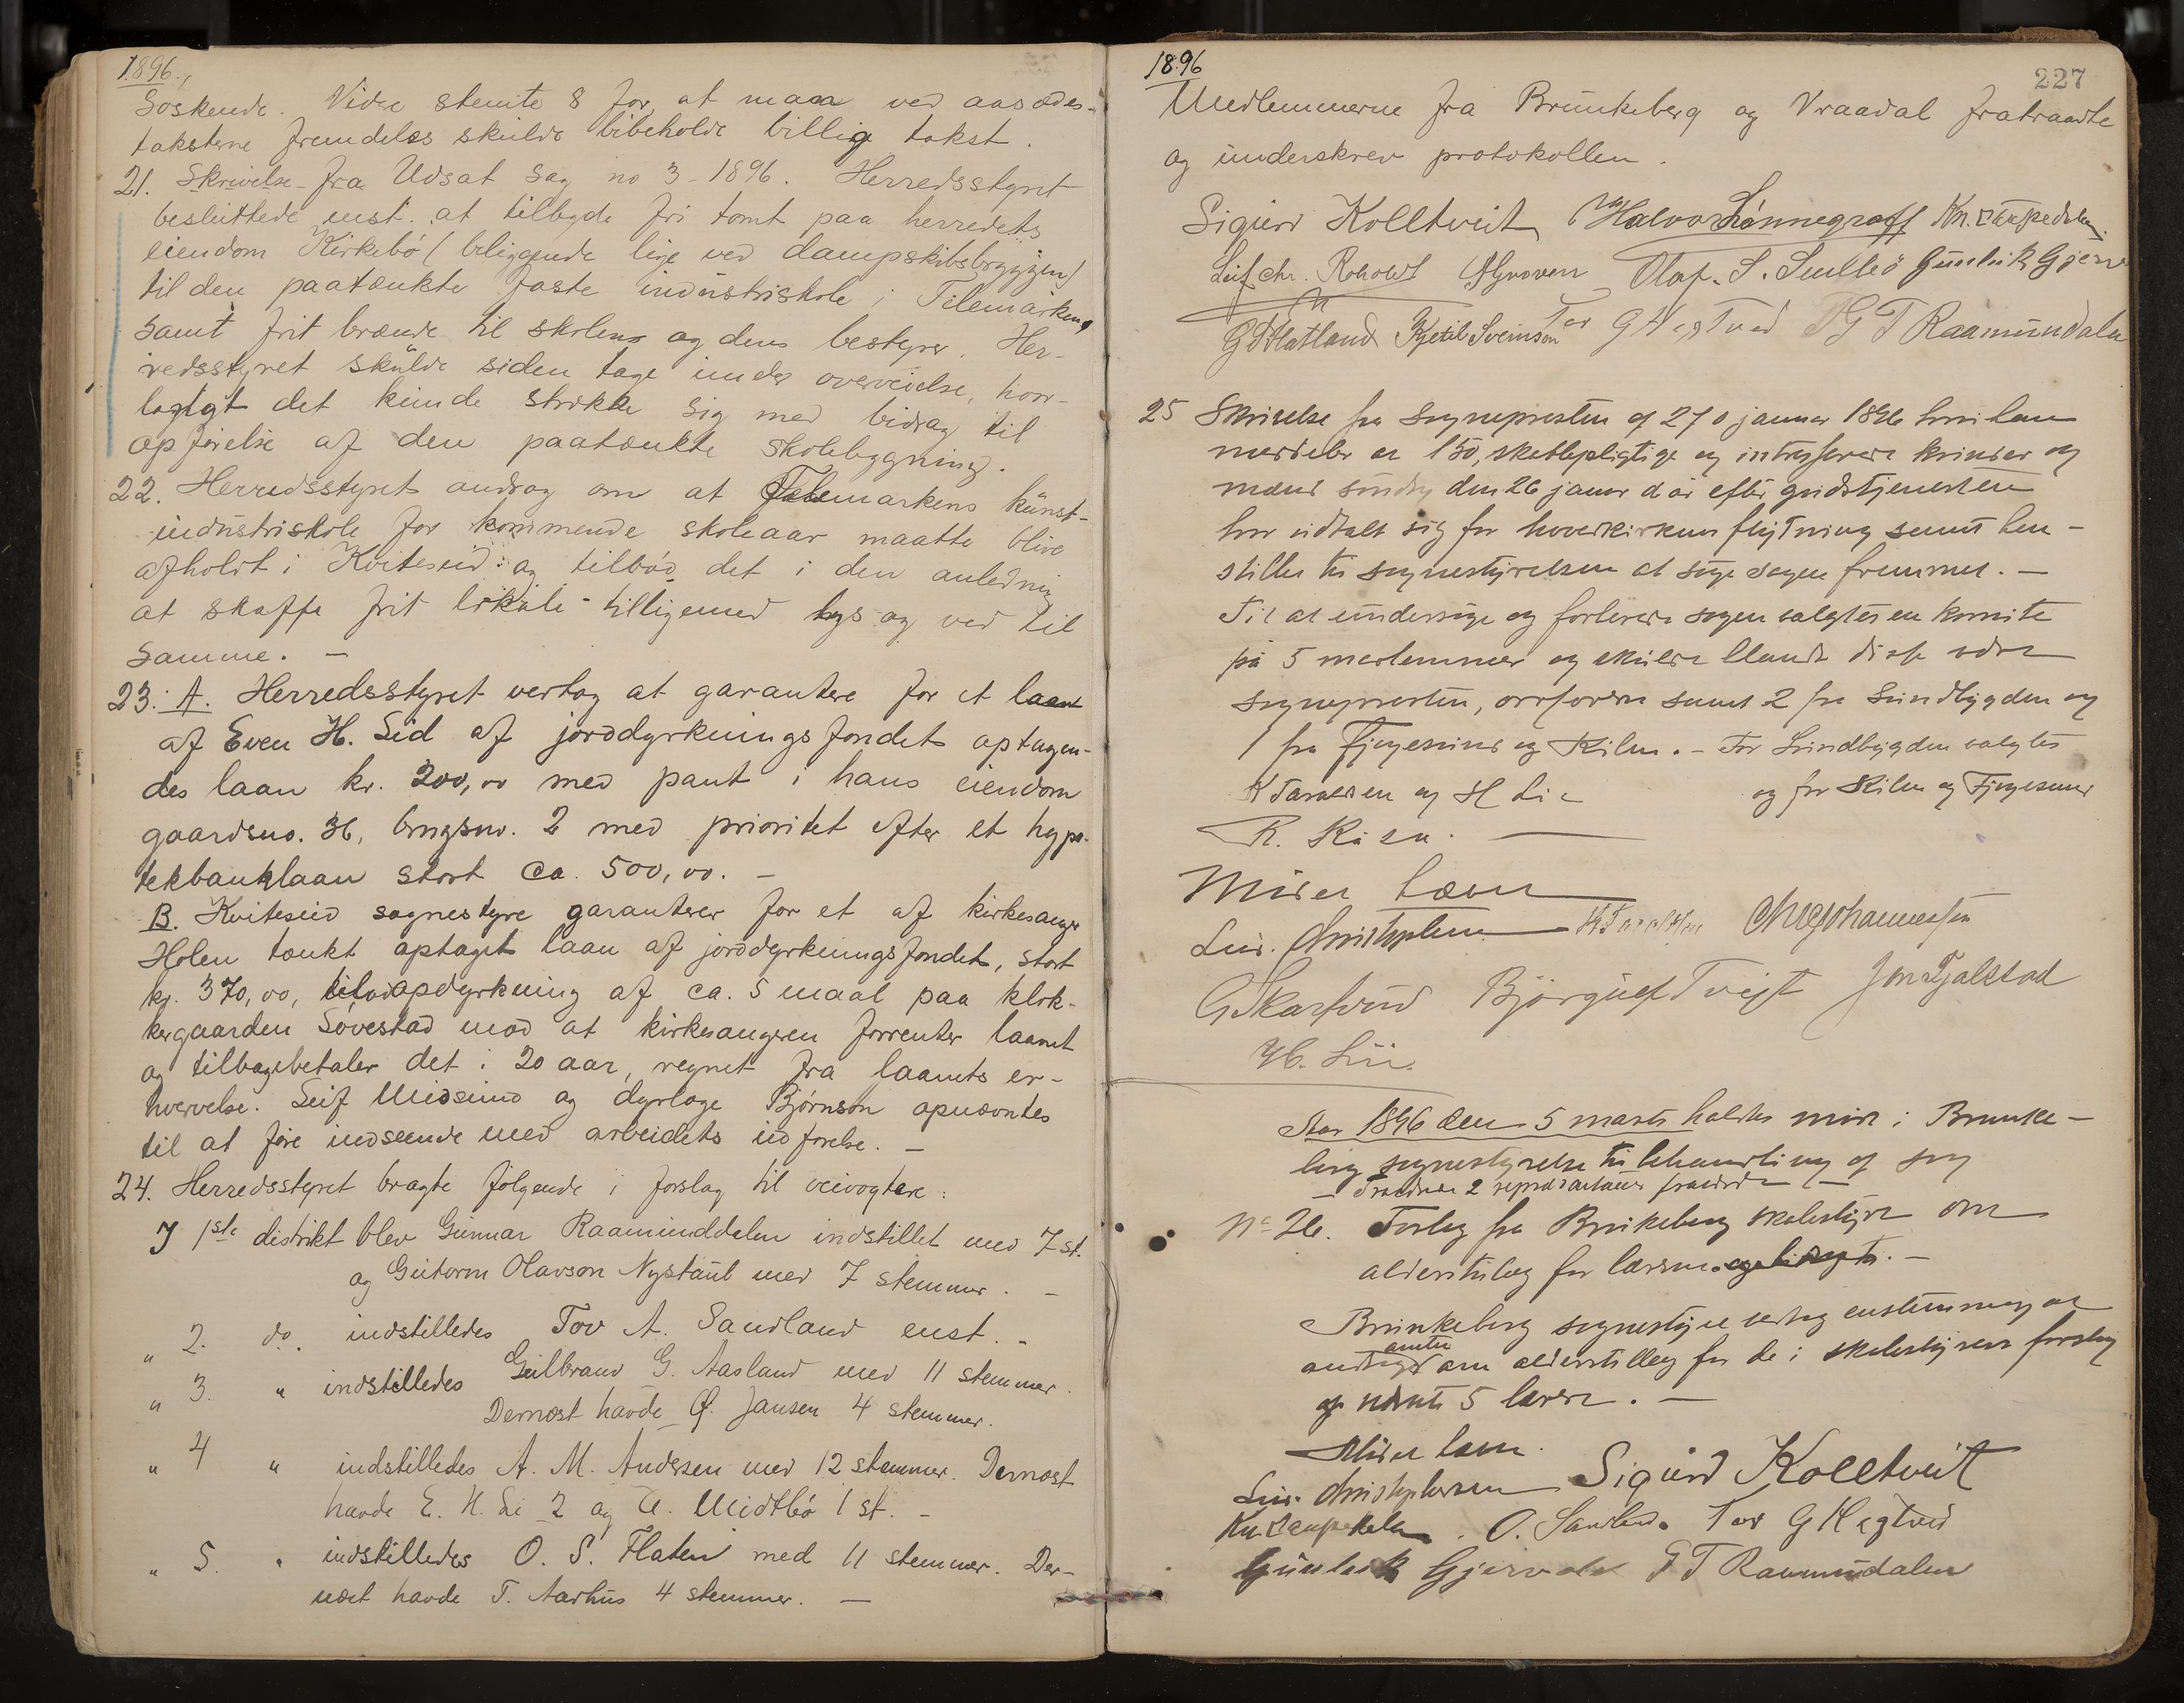 1896.,
Søskende. Vidre stemte 8 for, at maaa ved aasædes-
taksterne fremdeles skulde bibeholde billig takst.
21. Skrivelse fra Udsat Sag no 3-1896. Herredsstyret
besluttede enst. at tilbyde fri tomt paa herredets
eiendom Kirkebø (beliggende lige ved dampskibsbryggen)
til den paatænkte faste industriskole i Telemarken,
samt frit brænde til skolens og dens bestyrer. Her-
redsstyret skulde siden tage under overveielse, hvor-
lagtgt det kunde strække sig med bidrag til
opførelse af den paatænkte skolebygning.
22. Herredsstyret androg om at Telemarkens kunst-
industriskole for kommende skoleaar maatte blive
afholdt i Kviteseid og tilbød det i den anledning
at skaffe frit lokale tilligemed lys og ved til
samme. —
23. A. Herredsstyret vertog at garantere for et laant
af Even H. Lid af jorddyrkningsfondet optagen-
des laan kr. 200,00 med pant i hans eiendom
gaardsno. 36, brugsno. 2 med prioritet efter et hypo-
tekbanklaan stort ca. 500,00. —
B. Kviteseid sognestyre garanterer for et af kirkesanger
Holen tænkt optaget laan af jorddyrkningsfondet, stort
kr. 370,00, til opdyrkning af ca. 5 maal paa klok-
kergaarden Søvestad mod at kirkesangeren forrenter laanet
og tilbagebetaler det i 20 aar, regnet fra laanets er-
hvervelse. Leif Midsund og dyrlæge Bjørnson opnævntes
til at føre indseende med arbeidets udførelse. —
24. Herredsstyret bragte følgende i forslag til veivogtere:
I 1ste distrikt blev Gunnar Raamunddalen indstillet med 7 st.
og Gutorm Olavson Nystaul med 7 stemmer. —
" 2. do. indstilledes Tov A. Sandland enst. -
" 3. " indstilledes Gulbrand G. Aasland med 11 stemmer.
Dernæst havde Ø. Jansen 4 stemmer.
" 4 " indstilledes A. M. Andersen med 12 stemmer. Dernæst
havde E. H. Li 2 og A. Midtbø 1 st. -
" 5. " indstilledes O. S. Flaten med 11 stemmer. Der-
næst havde T. Aarhus 4 stemmer. —
1896
227
Medlemmerne fra Brunkeberg og Vraadal fratraadte
og underskrev protokollen.
Sigurd Kolltveit Halvor Lønnegraff Kn.
Leif chr. Roholdt Olaf. S. Gunleik Gjerv
G Flatland Kjetil Sveinson Tor G Hegtved G T Raamundalen
25 Skrivelse fra Sognepresten af 27 januar 1896 hvori han
meddeler at 150, skattepligtige og intresserede kvinder og
mænd søndag den 26 januar d år efter gudstjenesten
har udtalt sig for hovedkirkens flytning samt hen-
stiller til sognestyrelsen at søge sagen fremmet. —
Til at undersøge og forberede sagen valgtes en komite
på 5 medlemmer og skulde blandt disse være
sognepresten, ordføreren samt 2 fra Sundbygden og
1 fra Fjågesund og Kilen. - For Sundbygden valgtes
K Taraldsen og H Lie og for Kilen og Fjågesund
R. Kåsa. —
Midsund
Chr. Johannessen
G Skarfvud Bjørgulf Tveit Jon Fjalestad
H. Lii.
Aar 1896 den 5 marts holdtes møde i Brunke-
berg sognestyrelse til behandling af sag
No 26. Forslag fra Brunkeberg skolestyre om
alderstillæg for lærerne. —
Brunkeberg sognestyre vertog enstemmig at
andrage amtet om alderstillæg for de i skolestyrets forslag
nævnte 5 lærere. —
Sigurd Kolltveit
O. Sandland Tor G Hegtved
Gunleik Gjervale G T Raamundalen